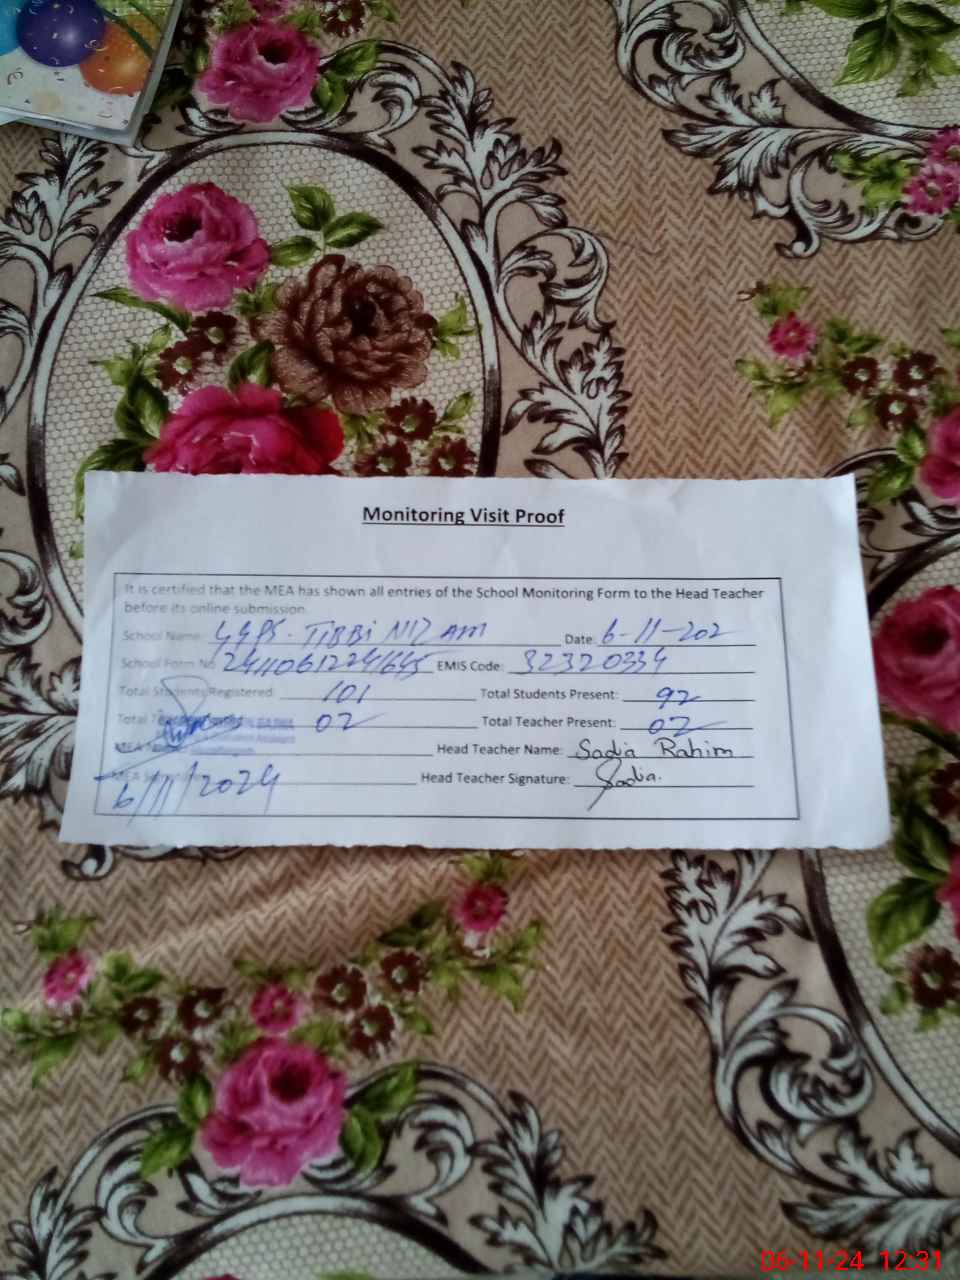 Monitoring Visit Proof
It is certified that the MEA has shown all entries of the School Monitoring Form to the Head Teacher
before its online submission.
School Name: GGPS. TIBBI NIZAM Date: 6-11-202
School Form No EMIS Code: 32320334
Total Students Registered: 101 Total Students Present: 92
Total 02 Total Teacher Present: 02
MEA Head Teacher Name: Sadia Rahim
MEA Head Teacher Signature: Sadia.
6/11/2024
06-11-24 12:31